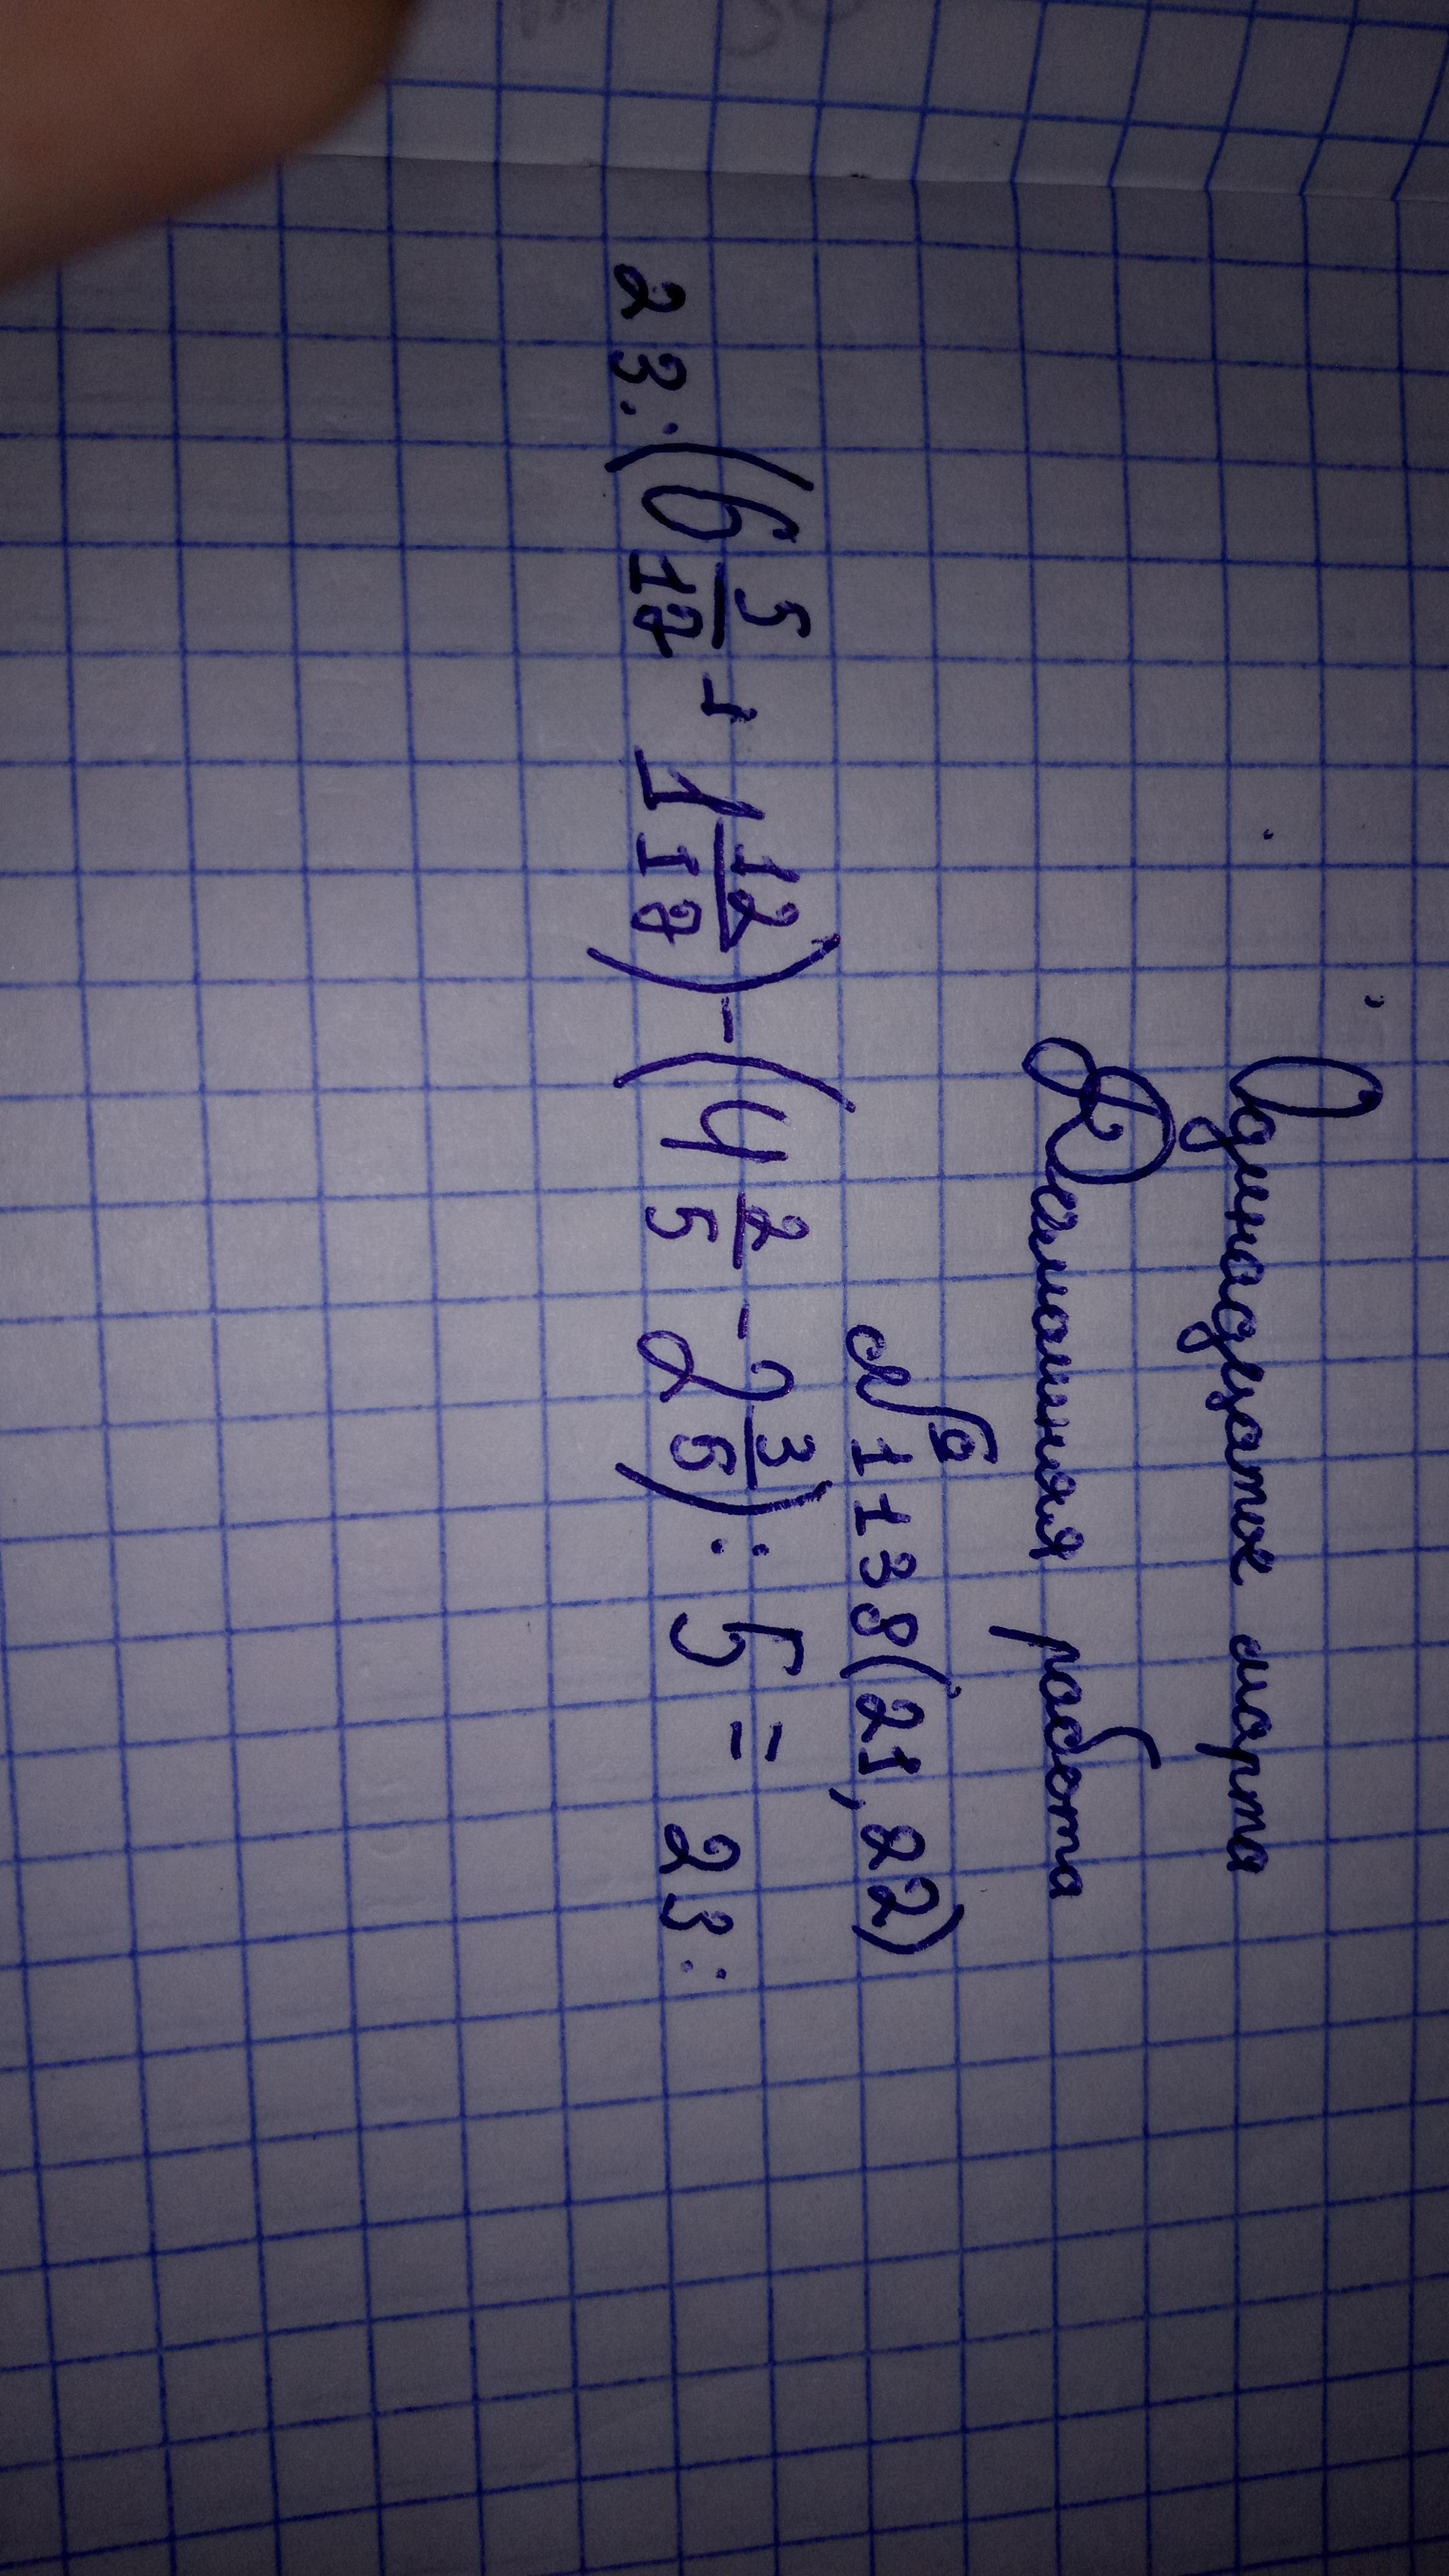 Одинадцатое марта
Домашняя работа
№ 1138(21,22)
23:(6 5/18 + 1 12/18) - (4 2/5 - 2 3/5) : 5 = 23: